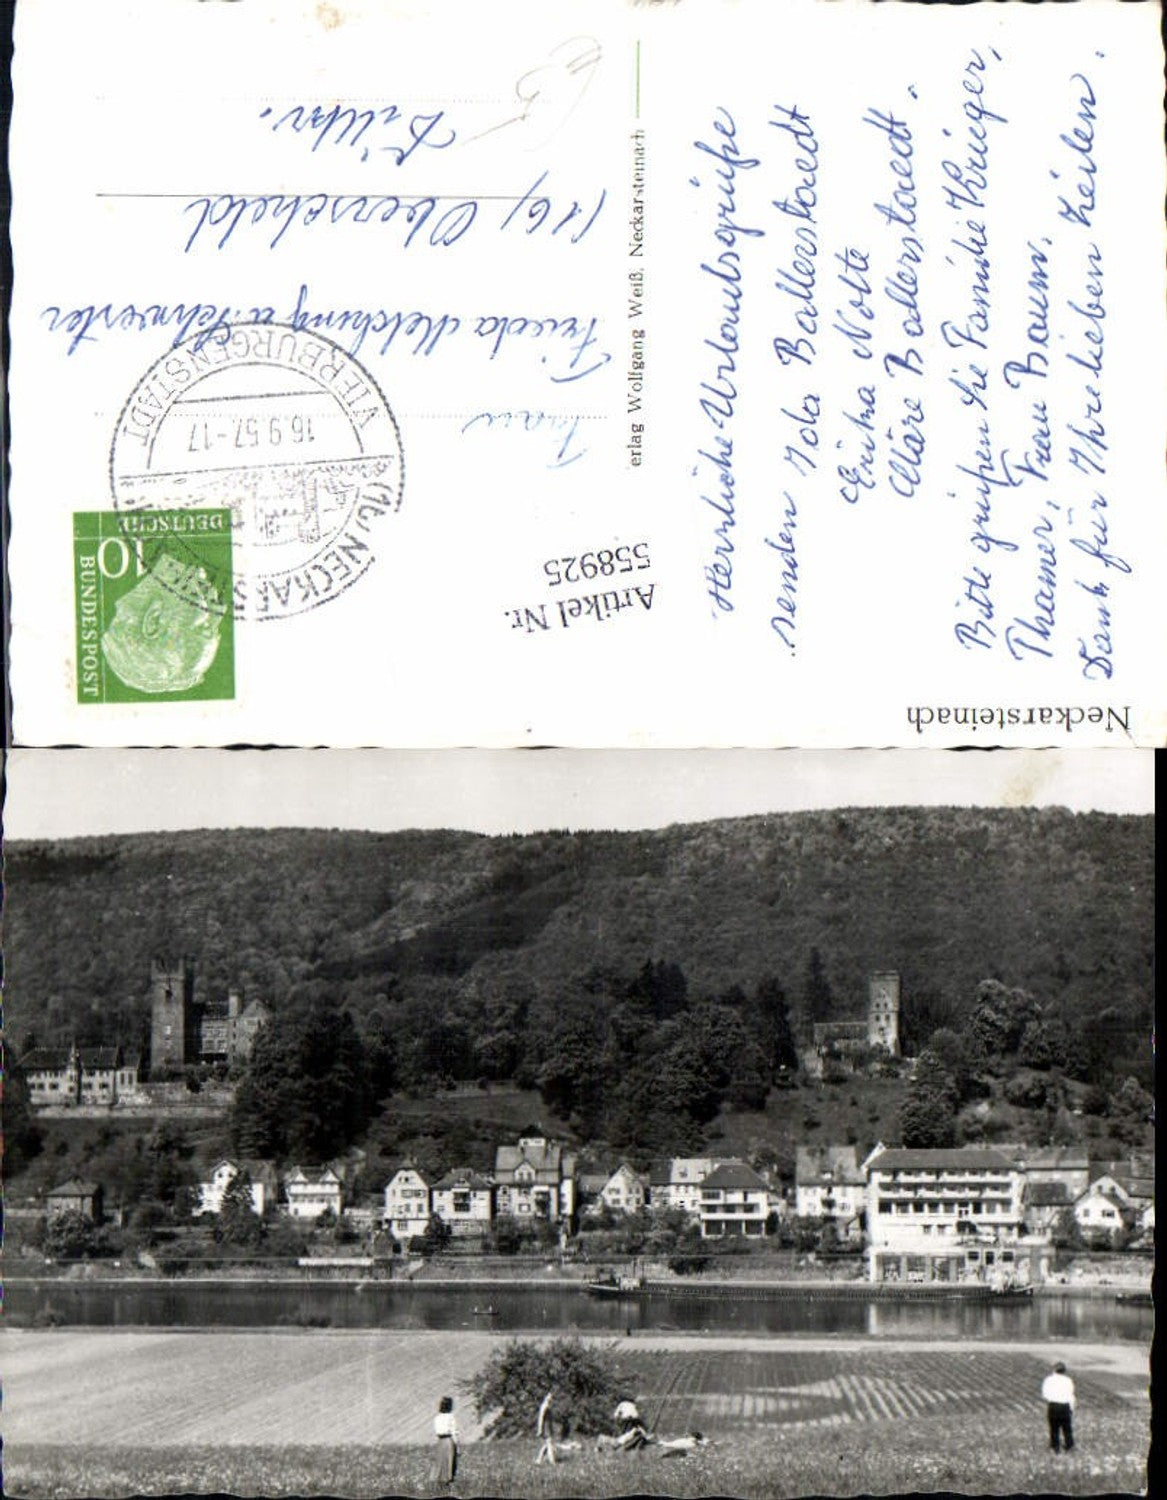 Neckarsteinach
Herzliche Urlaubsgrüße
senden Ida Ballerstaedt
Erika Nolte
Kläre Ballerstaedt.
Bitte grüßen Sie Familie Krieger,
Thamer, Frau Baum.
Dank für Ihre lieben Zeilen.
erlag Wolfgang Weiß, Neckarsteinach
Artikel Nr.
558925
DEUTSCHE
BUNDESPOST
10
(16) NECKARSTEINACH
16.9.57.-17
VIERBURGENSTADT
Frau
Frieda Melching u. Schwester
(16) Oberscheld
Dillkr.